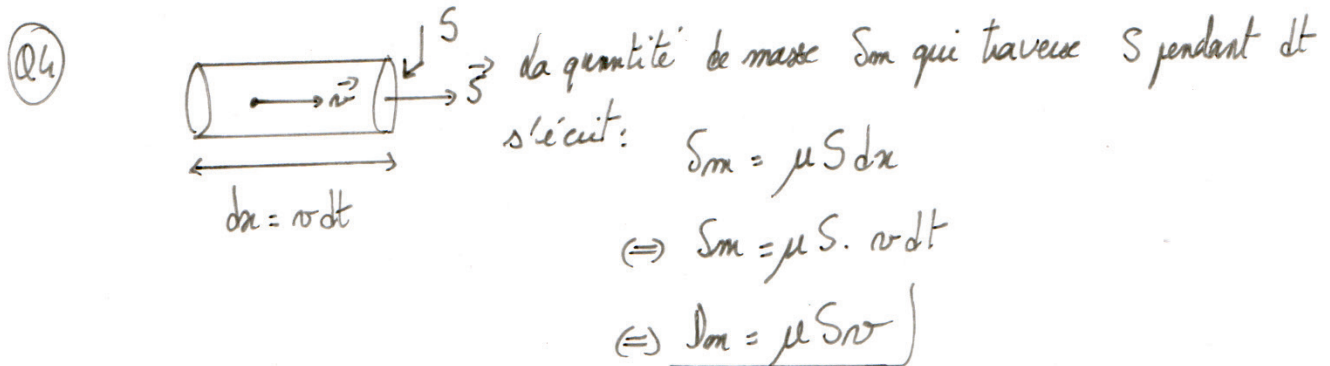 Q4
S
v⃗
S⃗
dx = v dt
La quantité de masse δm qui traverse S pendant dt
s'écrit :
δm = μ S dx
(=) δm = μ S . v dt
(=) Dm = μ S v